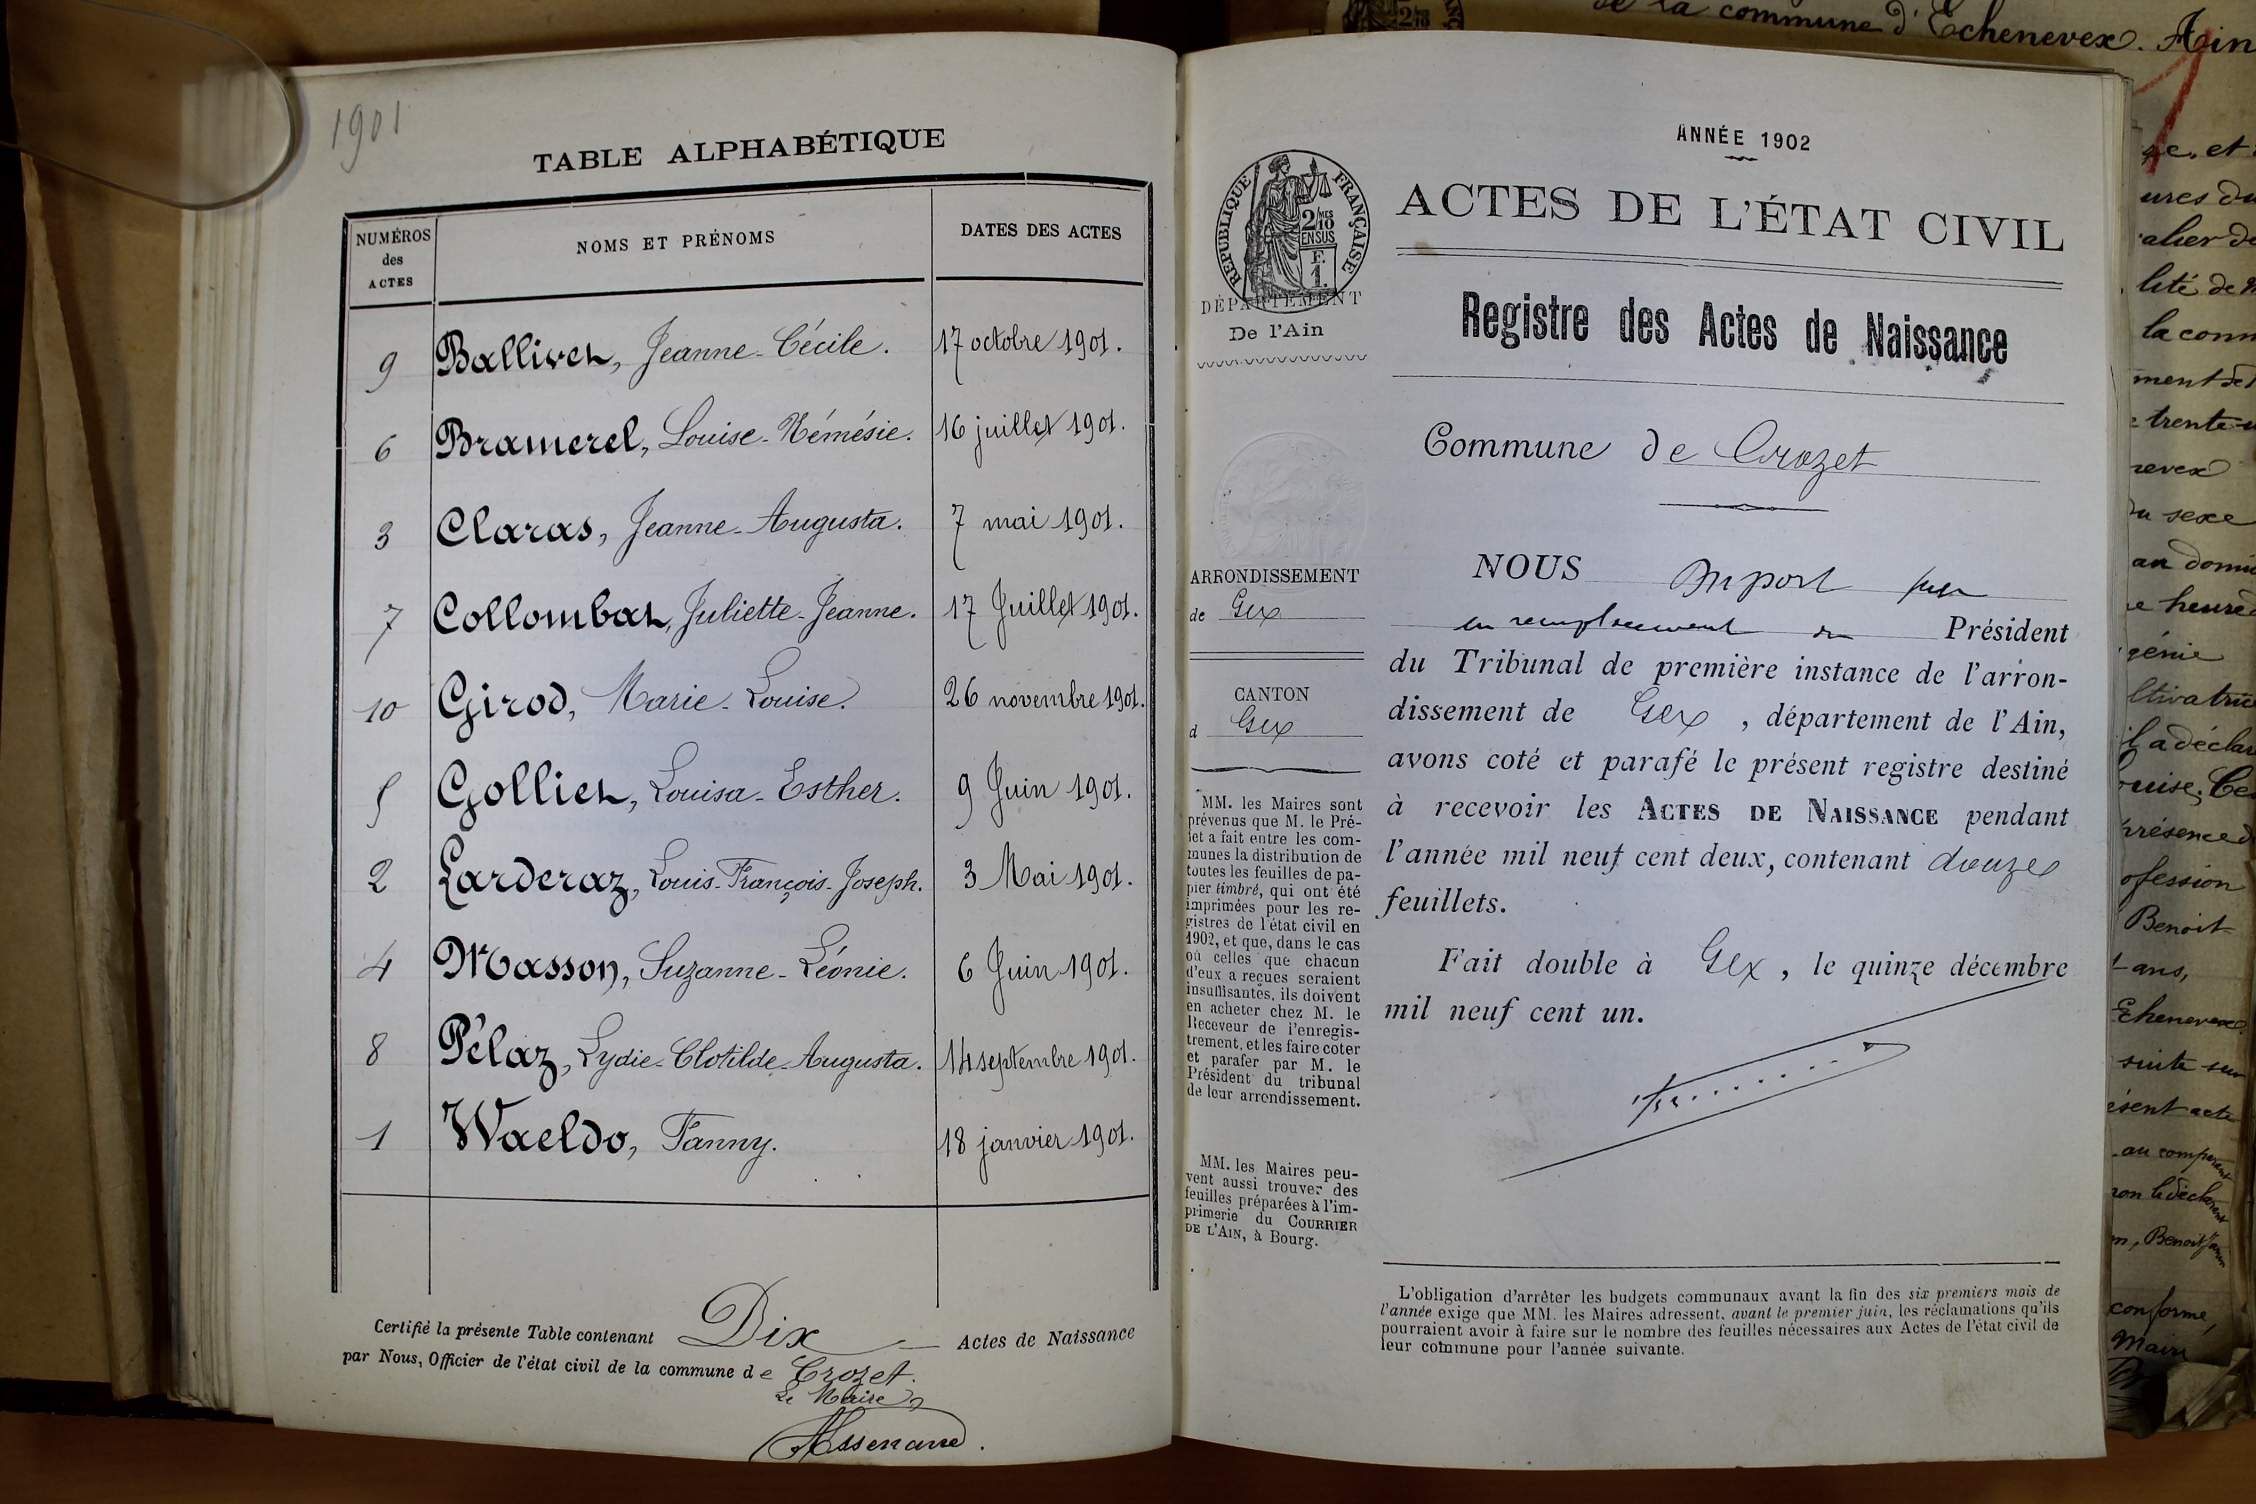 1901
TABLE ALPHABÉTIQUE
NUMÉROS des ACTES
NOMS ET PRÉNOMS
DATES DES ACTES
9 Ballivet, Jeanne-Cécile. 17 octobre 1901.
6 Bramerel, Louise-Némésie. 16 juillet 1901.
3 Claras, Jeanne-Augusta. 7 mai 1901.
7 Collombat, Juliette-Jeanne. 17 Juillet 1901.
10 Girod, Marie-Louise. 26 novembre 1901.
5 Golliet, Louisa-Esther. 9 Juin 1901.
2 Larderaz, Louis-François-Joseph. 3 Mai 1901.
4 Masson, Suzanne-Léonie. 6 Juin 1901.
8 Pélaz, Lydie-Clotilde-Augusta. 14 septembre 1901.
1 Waeldo, Fanny. 18 janvier 1901.
Certifié la présente Table contenant Dix Actes de Naissance
par Nous, Officier de l'état civil de la commune de Crozet.
Le Maire
ANNÉE 1902
RÉPUBLIQUE FRANÇAISE
2/10 MES
EN SUS
F.
1.
DÉPARTEMENT
De l'Ain
ACTES DE L'ÉTAT CIVIL
Registre des Actes de Naissance
Commune de Crozet
ARRONDISSEMENT
de Gex
CANTON
d Gex
MM. les Maires sont
prévenus que M. le Pré-
fet a fait entre les com-
munes la distribution de
toutes les feuilles de pa-
pier timbré, qui ont été
imprimées pour les re-
gistres de l'état civil en
1902, et que, dans le cas
où celles que chacun
d'eux a reçues seraient
insuffisantes, ils doivent
en acheter chez M. le
Receveur de l'enregis-
trement, et les faire coter
et parafer par M. le
Président du tribunal
de leur arrondissement.
MM. les Maires peu-
vent aussi trouver des
feuilles préparées à l'im-
primerie du COURRIER
DE L'AIN, à Bourg.
NOUS
en remplacement du Président
du Tribunal de première instance de l'arron-
dissement de Gex, département de l'Ain,
avons coté et parafé le présent registre destiné
à recevoir les ACTES DE NAISSANCE pendant
l'année mil neuf cent deux, contenant douze
feuillets.
Fait double à Gex, le quinze décembre
mil neuf cent un.
L'obligation d'arrêter les budgets communaux avant la fin des six premiers mois de
l'année exige que MM. les Maires adressent, avant le premier juin, les réclamations qu'ils
pourraient avoir à faire sur le nombre des feuilles nécessaires aux Actes de l'état civil de
leur commune pour l'année suivante.
de la commune d'Echenevex. Ain
et
ures du
lité de
la com
ment
trente
nevex
du sexe
au domi
heure
génie
ltivatrice
il a déclar
ouise
présence d
ofession
Benoit
ans,
Echenevex
suite
ésent acte
au comparant
conforme,
Maire